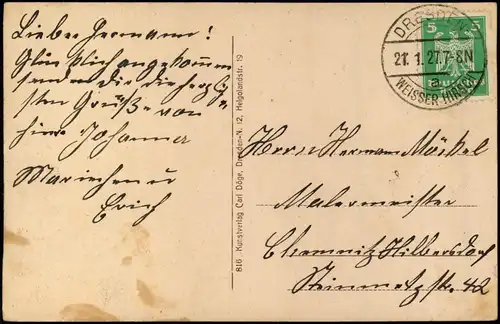 Lieber Hermann!
Glücklich angekommen
senden dir die herzlich-
sten Grüße von
hier Johanna
Mariechen u
Erich
816 - Kunstverlag Carl Döge, Dresden-N. 12, Helgolandstr. 19
DRESDEN
21.1.27.7-8N
a
WEISSER HIRSCH
5 5
Herrn Hermann Möckel
Malermeister
Chemnitz Hilbersdorf
Steinmetzstr. 42